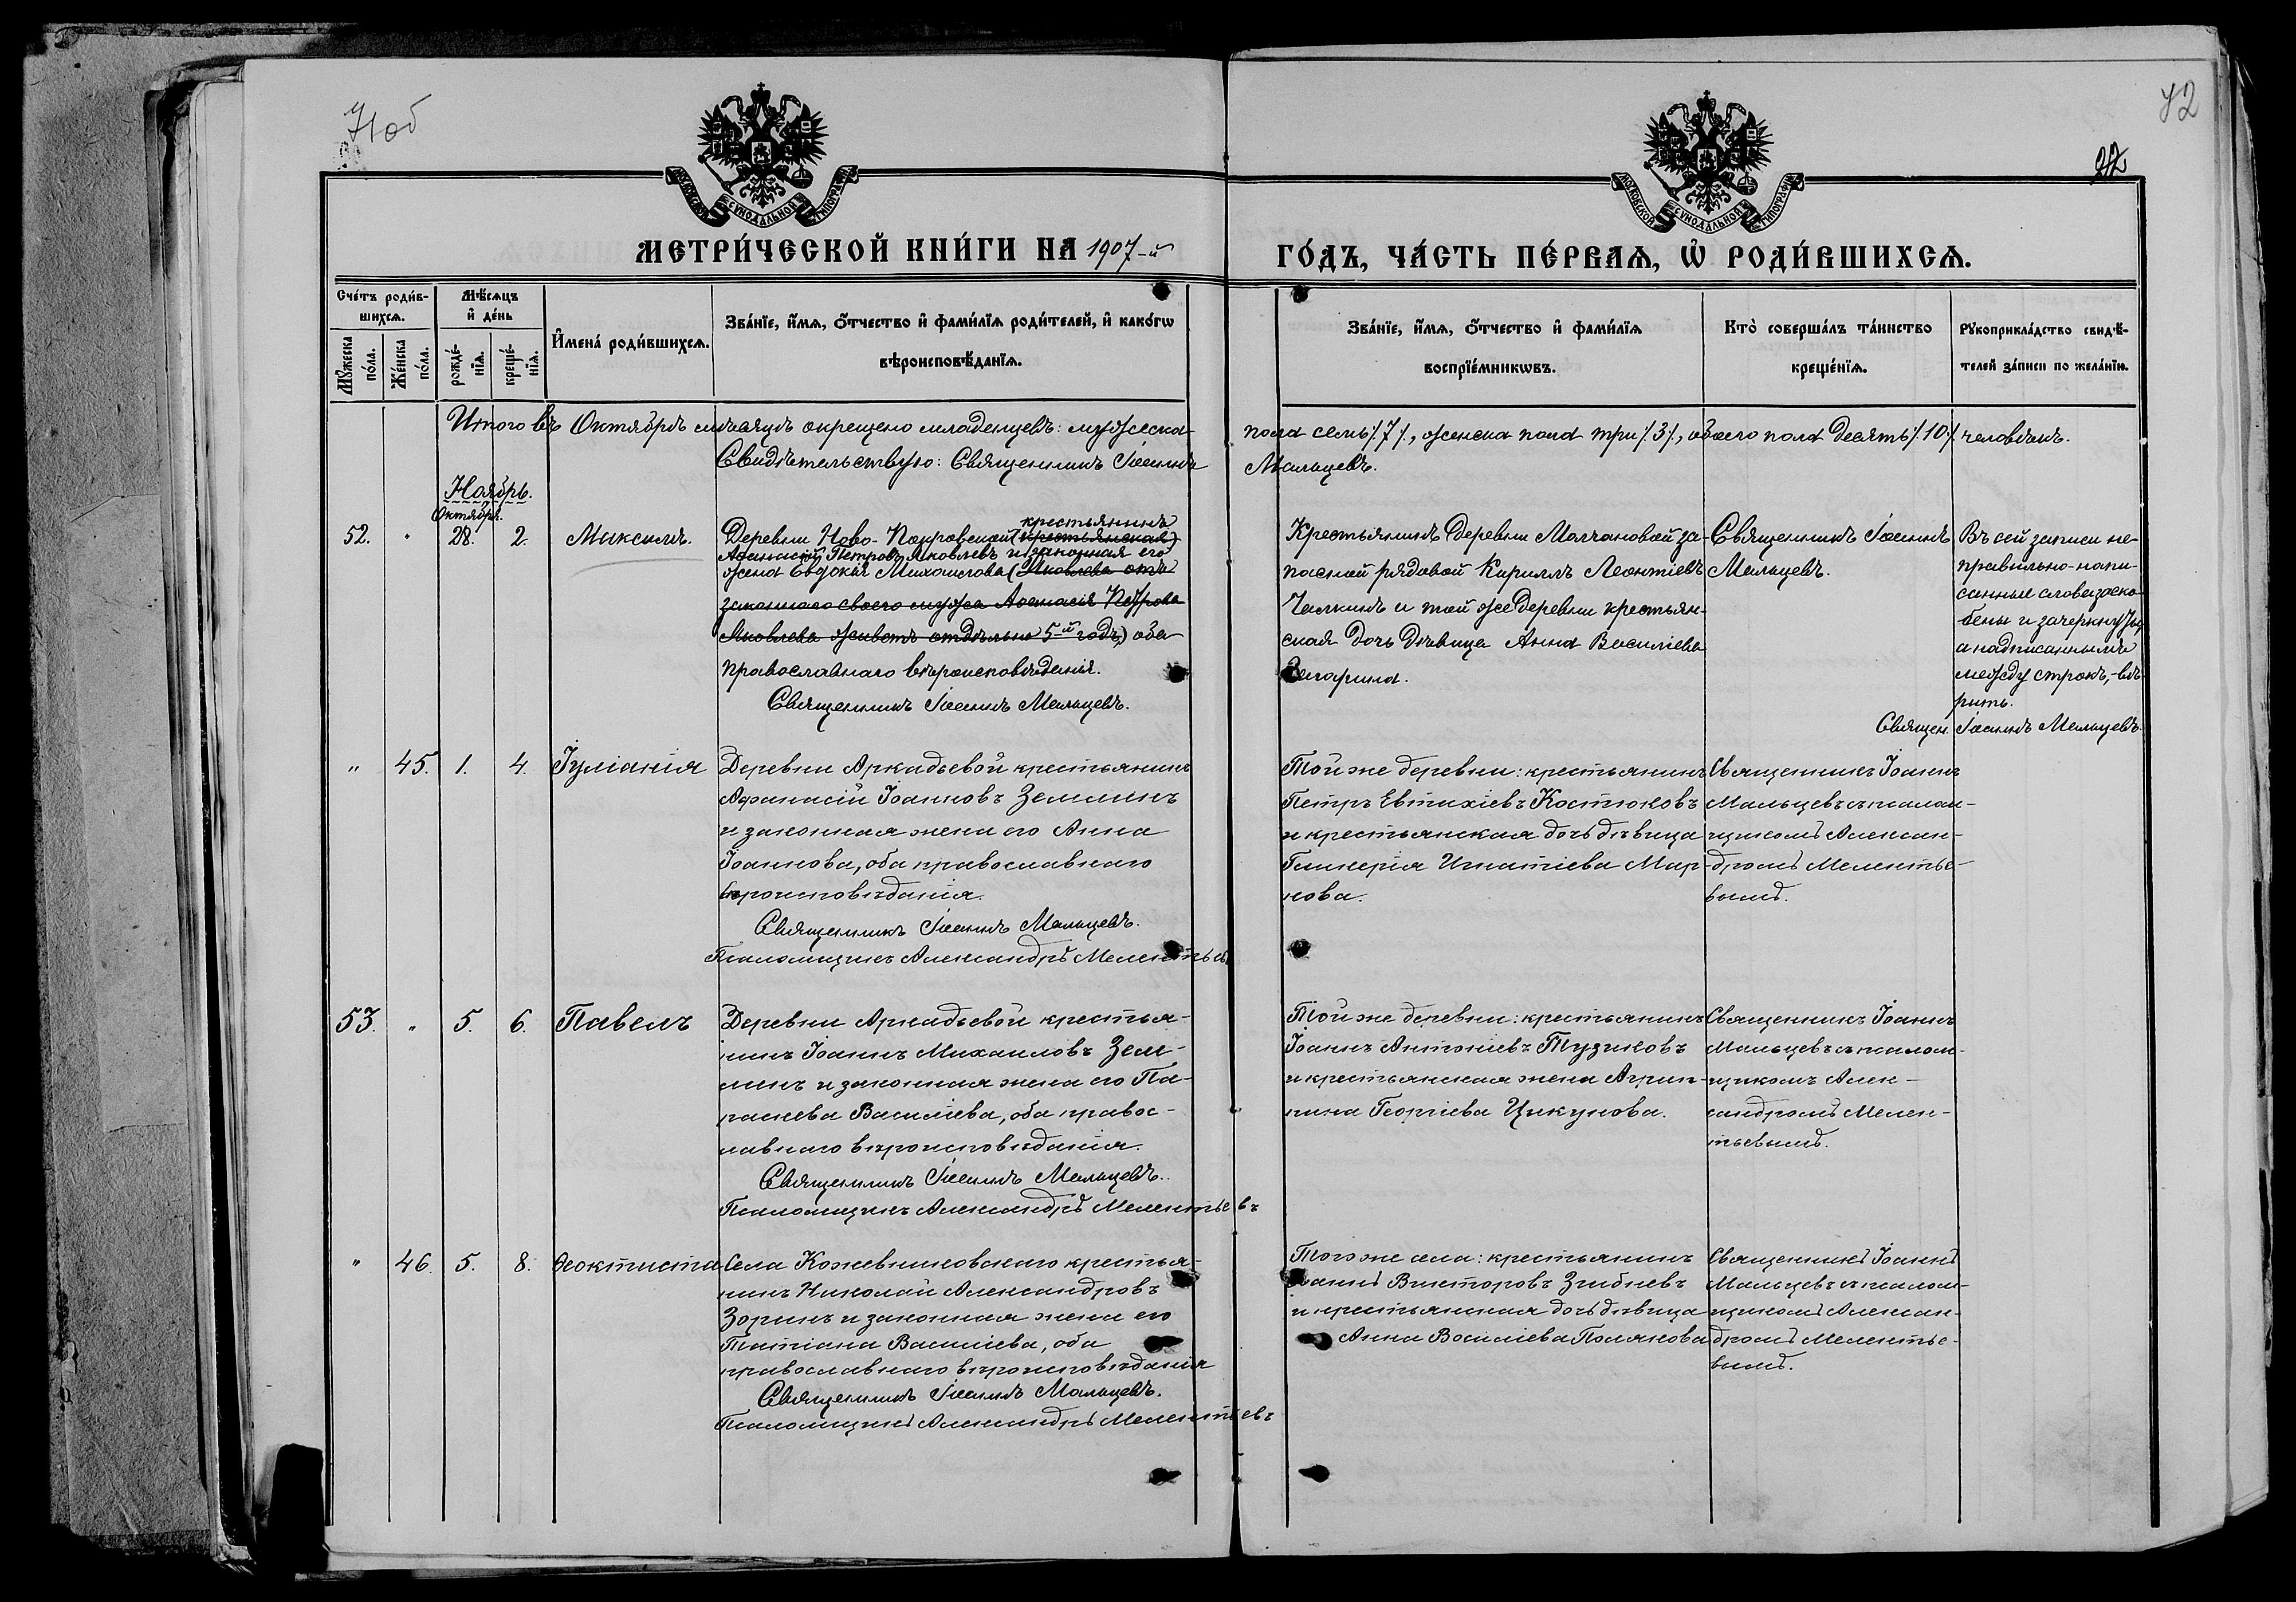 71об
72
22
МОСКОВСКОЙ СѴНОДАЛЬНОЙ ТИПОГРАФІИ
МОСКОВСКОЙ СѴНОДАЛЬНОЙ ТИПОГРАФІИ
МЕТРИ́ЧЕСКОЙ КНИ́ГИ НА 1907-й
ГО́ДЪ, ЧА́СТЬ ПЕ́РВАѦ, Ѽ РОДИ́ВШИХСѦ.
Сче́тъ роди́в-
шихсѧ.
Мꙋжеска по́ла.
Же́нска по́ла.
Мѣ́сѧцъ и҆ де́нь
рожде́-нїѧ.
креще́-нїѧ.
И҆мена́ роди́вшихсѧ.
Зва́нїе, и҆́мѧ, ѻ҆́тчество и҆ фами́лїѧ роди́телей, и҆ како́гѡ
вѣроисповѣ́данїѧ.
Зва́нїе, и҆́мѧ, ѻ҆́тчество и҆ фами́лїѧ
воспрїе́мникѡвъ.
Кто̀ соверша́лъ та́инство
креще́нїѧ.
Рꙋкоприкла́дство свидѣ́-
телей за́писи по жела́нїю.
Итого въ Октябрѣ мѣсяцѣ окрещено младенцевъ: мужеска
пола семь /7/, женска пола три /3/, обоего пола десять /10/ человѣкъ.
Свидѣтельствую: Священникъ Іоаннъ
Мальцевъ.
Ноябрь.
Октября.
52. " 28. 2. Максимъ.
крестьянинъ
Деревни Ново-Покровской (крестьянская)
Аѳанасій Петровъ Яковлевъ и законная его
жена Евдокія Михаилова (Яковлева отъ
законнаго своего мужа Аѳанасія Петрова
Яковлева живетъ отдѣльно 5-й годъ) оба
православнаго вѣроисповѣданія.
Священникъ Іоаннъ Мальцевъ.
Крестьянинъ деревни Молчановой за-
пасной рядовой Кириллъ Леонтіевъ
Чалкинъ и той же деревни крестьян-
ская дочь дѣвица Анна Василіева
Священникъ Іоаннъ
Мальцевъ.
Въ сей записи не-
правильно-напи-
санныя слова заско-
бены и зачеркнуты,
а надписаннымъ
между строкъ,-вѣ-
рить.
Священ. Іоаннъ Мальцевъ.
" 45. 1. 4. Іуліанія
Деревни Аркадьевой крестьянинъ
Афанасій Іоанновъ Землинъ
и законная жена его Анна
Іоаннова, оба православнаго
вѣроисповѣданія.
Священникъ Іоаннъ Мальцевъ.
Псаломщикъ Александръ Мелентьевъ
Той же деревни: крестьянинъ
Петръ Евтихіевъ Костюковъ
и крестьянская дочь дѣвица
Гликерія Игнатіева Мар-
кова.
Священникъ Іоаннъ
Мальцевъ съ псалом-
щикомъ Алексан-
дромъ Мелентье-
вымъ.
53. " 5. 6. Павелъ
Деревни Аркадьевой крестья-
нинъ Іоаннъ Михаиловъ Зем-
линъ и законная жена его Па-
раскева Василіева, оба правос-
лавнаго вѣроисповѣданія.
Священникъ Іоаннъ Мальцевъ.
Псаломщикъ Александръ Мелентьевъ
Той же деревни: крестьянинъ
Іоаннъ Антоніевъ Тузиковъ
и крестьянская жена Агрип-
пина Георгіева Цикунова.
Священникъ Іоаннъ
Мальцевъ съ псалом-
щикомъ Алек-
сандромъ Мелен-
тьевымъ.
" 46. 5. 8. Ѳеоктиста
Села Кожевниковскаго крестья-
нинъ Николай Александровъ
Зоринъ и законная жена его
Татіана Василіева, оба
православнаго вѣроисповѣданія
Священникъ Іоаннъ Мальцевъ.
Псаломщикъ Александръ Мелентьевъ
Того же села: крестьянинъ
Іоаннъ Викторовъ Згибневъ
и крестьянская дочь дѣвица
Анна Василіева Полякова
Священникъ Іоаннъ
Мальцевъ съ псалом-
щикомъ Алексан-
дромъ Мелентье-
вымъ.